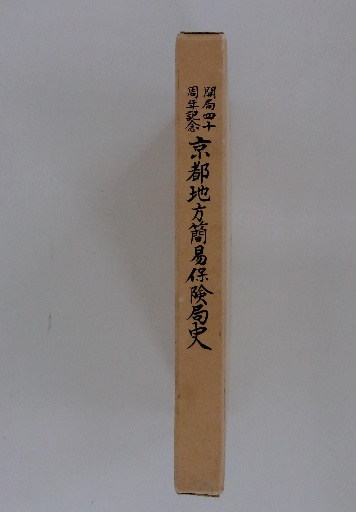 開局四十
周年記念
京都地方簡易保険局史